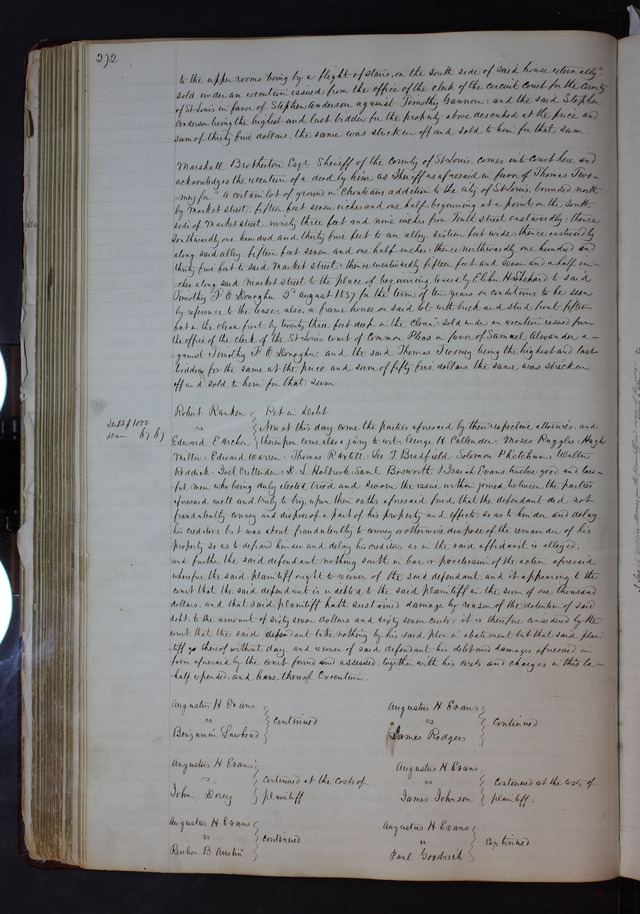 272
to the upper rooms being by a flight of stairs, on the south side of said house externally"
sold under an execution issued from the office of the clerk of the circuit court for the County
of St Louis in favor of Stephen Anderson against Timothy Gannon: and the said Stephen
Anderson being the highest and last bidder for the property above described at the price and
sum of thirty five dollars, the same was stricken off and sold to him for that sum.
Marshall Brotherton Esqr Sheriff of the County of St Louis, comes into Court here and
acknowledges the execution of a deed by him as Sheriff as aforesaid in favor of Thomas Two-
mey for "A certain lot of ground in Chouteaus addition to the city of St Louis, bounded north
by Market street, fifteen feet seven inches and one half, beginning at a point on the South
side of Market street, ninety three feet and nine inches from Tenth street eastwardly: thence
Southwardly one hundred and thirty five feet to an alley, sixteen feet wide: thence eastwardly
along said alley, fifteen feet seven and one half inches: thence northwardly one hundred and
thirty five feet to said Market street: thence westwardly fifteen feet and seven and a half in-
ches along said Market street to the place of beginning leased by Elihu H Shepard to said
Timothy F. O Donoghu 2d August 1837 for the term of ten years on conditions to be seen
by reference to the lease: also, a frame house on said lot with brick and stone front, fifteen
feet in the clear front by twenty three feet deep in the clear" sold under an execution issued from
the office of the clerk of the St Louis court of Common Pleas in favor of Samuel Alexander a-
gainst Timothy F. O Donaghu; and the said Thomas Twomey being the highest and last
bidder for the same at the price and sum of fifty five dollars the same was stricken
off and sold to him for that sum
Robert Ranken } Pet in Debt
Debt $1000
vs } Now at this day come the parties aforesaid by their respective attornies, and
67.67
Edward E Archer } thereupon come also a jury to wit: George H Callender: Moses Ruggles: Hugh
Miller: Edward Warren: Thomas Bartlett: Lee T. Bradfield: Solomon Ketchum: Walter
Joel Crettender: D. L Holbrook: Saml Bosworth & Isaiah Evans, twelve good and law-
ful men who being duly elected tried and sworn the issue within joined between the parties
aforesaid well and truly to try, upon their oaths aforesaid find that the defendant did not
fraudulently convey and dispose of a part of his property and effects so as to hinder and delay
his creditors, but was about fraudulently to convey or otherwise dispose of the remainder of his
property so as to defraud hinder and delay his creditors as in the said affidavit is alleged,
and further the said defendant nothing saith in bar or preclusion of the action aforesaid
wherefore the said plaintiff ought to recover of the said defendant, and it appearing to the
court that the said defendant is indebted to the said plaintiff in the sum of one thousand
dollars, and that said plaintiff hath sustained damage by reason of the detention of said
debt to the amount of sixty seven dollars and sixty seven cents: it is therefore considered by the
court that the said defendant take nothing by his said plea in abatement but that said plain-
tiff go thereof without day, and recover of said defendant his debt and damages aforesaid in
form aforesaid by the court found and assessed together with his costs and charges in this be-
half expended, and have thereof Execution.
Augustus H Evans
vs } continued
Benjamin Lawhead
Augustus H Evans
vs } continued
James Rodgers
Augustus H Evans
vs } continued at the costs of
John Dorey } plaintiff
Augustus H Evans
vs } continued at the costs of
James Johnson } plaintiff.
Augustus H Evans
vs } continued
Reuben B Austin
Augustus H Evans
vs } continued
Paul Goodrich